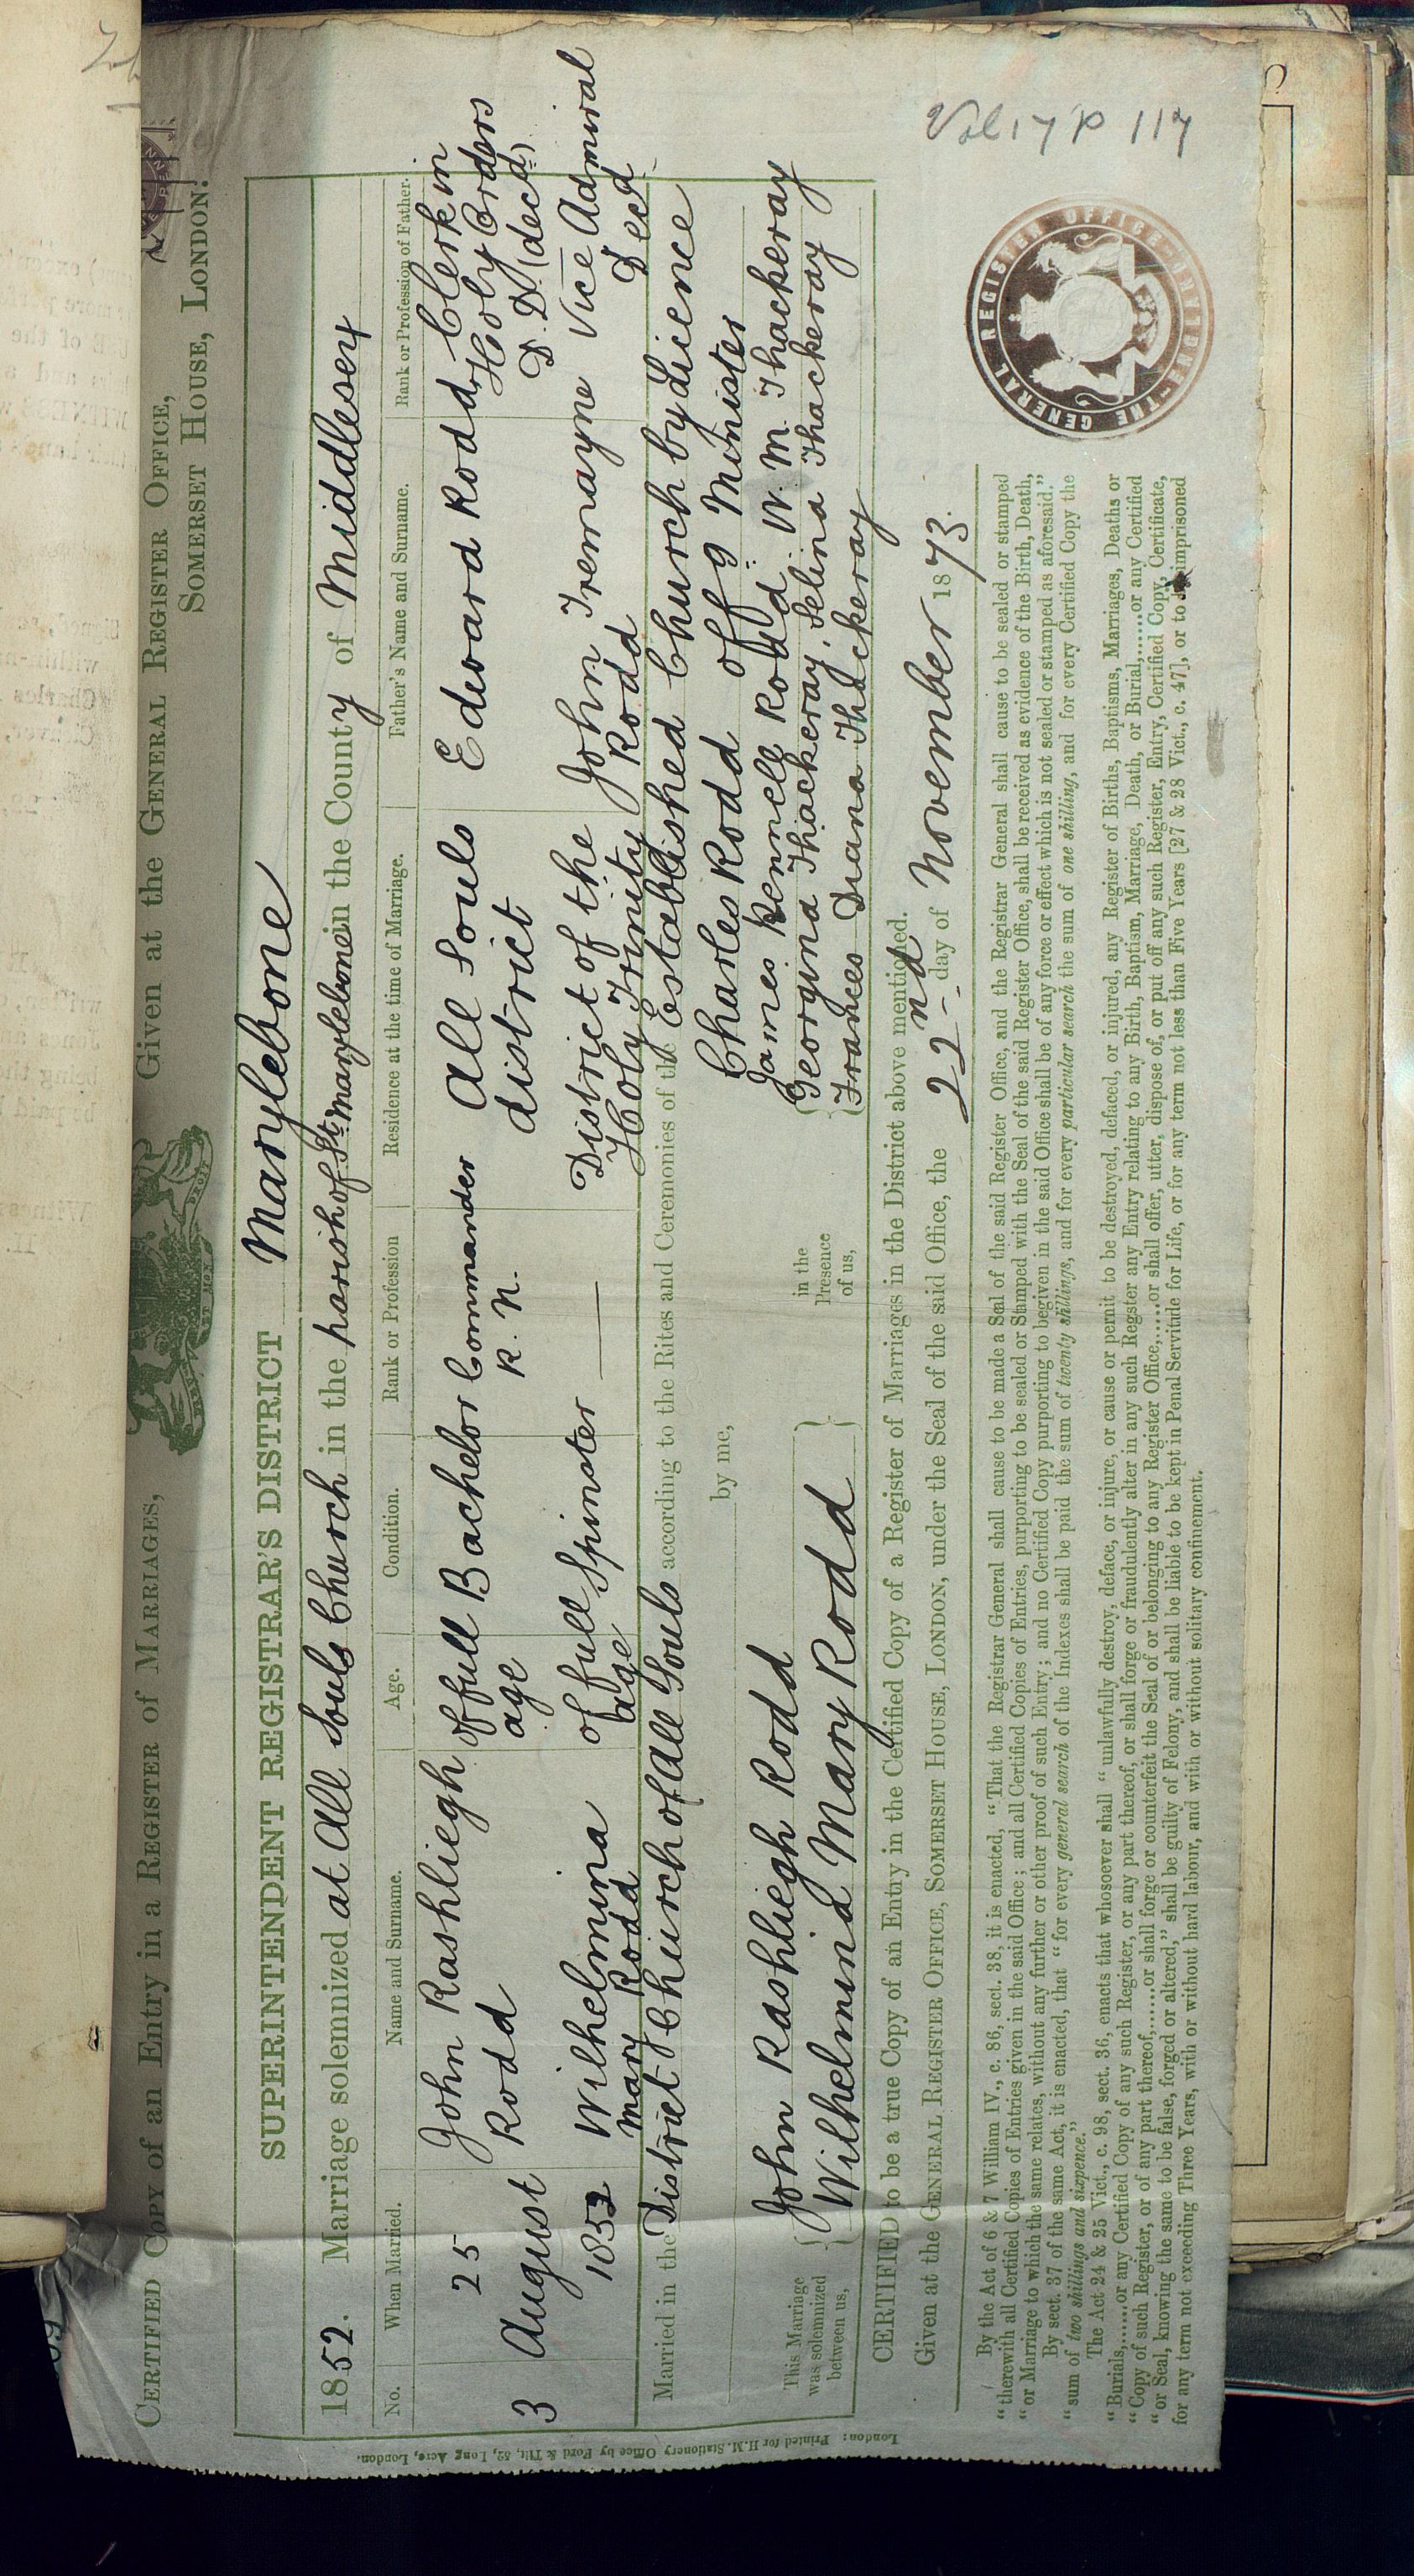 CERTIFIED COPY of an Entry in a REGISTER OF MARRIAGES, Given at the GENERAL REGISTER OFFICE,
SOMERSET HOUSE, LONDON.
SUPERINTENDENT REGISTRAR'S DISTRICT Marylebone
1852. Marriage solemnized at All Souls Church in the parish of St. Marylebone in the County of Middlesex
No. When Married. Name and Surname. Age. Condition. Rank or Profession Residence at the time of Marriage. Father's Name and Surname. Rank or Profession of Father.
3 25 August 1852 John Rashliegh Rodd of full age Bachelor Commander R. N. All Souls district Edward Rodd Clerk in Holy Orders D. D. (decd)
Wilhelmina Mary Rodd of full age Spinster — District of the Holy Trinity John Tremayne Rodd Vice Admiral Decd
Married in the District Church of All Souls according to the Rites and Ceremonies of the Established Church by Licence
by me, Charles Rodd offg Minister
This Marriage was solemnized between us, John Rashliegh Rodd Wilhelmina Mary Rodd
in the Presence of us, James Rennell Rodd. W. M. Thackeray
Georgina Thackeray, Selina Thackeray
Frances Diana Thackeray
CERTIFIED to be a true Copy of an Entry in the Certified Copy of a Register of Marriages in the District above mentioned.
Given at the GENERAL REGISTER OFFICE, SOMERSET HOUSE, LONDON, under the Seal of the said Office, the 22nd day of November 1873.
By the Act of 6 & 7 William IV., c. 86, sect. 38, it is enacted, "That the Registrar General shall cause to be made a Seal of the said Register Office, and the Registrar General shall cause to be sealed or stamped
"therewith all Certified Copies of Entries given in the said Office; and all Certified Copies of Entries, purporting to be sealed or Stamped with the Seal of the said Register Office, shall be received as evidence of the Birth, Death,
"or Marriage to which the same relates, without any further or other proof of such Entry; and no Certified Copy purporting to be given in the said Office shall be of any force or effect which is not sealed or stamped as aforesaid."
By sect. 37 of the same Act, it is enacted, that "for every general search of the Indexes shall be paid the sum of twenty shillings, and for every particular search the sum of one shilling, and for every Certified Copy the
"sum of two shillings and sixpence."
The Act 24 & 25 Vict., c. 98, sect. 36, enacts that whosoever shall "unlawfully destroy, deface, or injure, or cause or permit to be destroyed, defaced, or injured, any Register of Births, Baptisms, Marriages, Deaths or
"Burials,......or any Certified Copy of any such Register, or any part thereof, or shall forge or fraudulently alter in any such Regster any Entry relating to any Birth, Baptism, Marriage, Death, or Burial,......or any Certified
"Copy of such Register, or of any part thereof,......or shall forge or counterfeit the Seal of or belonging to any Register Office,......or shall offer, utter, dispose of, or put off any such Register, Entry, Certified Copy, Certificate,
"or Seal, knowing the same to be false, forged or altered," shall be guilty of Felony, and shall be liable to be kept in Penal Servitude for Life, or for any term not less than Five Years [27 & 28 Vict., c. 47], or to be imprisoned
for any term not exceeding Three Years, with or without hard labour, and with or without solitary confinement.
THE GENERAL REGISTER OFFICE-LONDON
Vol 17 p 117
London: Printed for H.M. Stationery Office by Ford & Tilt, 52, Long Acre, London.